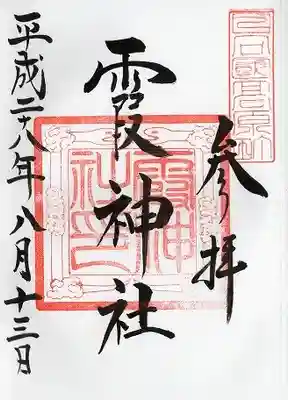 日向國高原
参拝
霞神社
霞神
社印
平成二十八年八月十三日